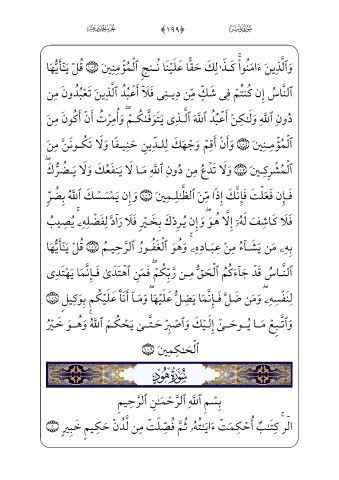 سورة يونس ﴿١٩٩﴾ الجزء الحادي عشر
وَٱلَّذِينَ ءَامَنُوا۟ ۚ كَذَٰلِكَ حَقًّا عَلَيْنَا نُنجِ ٱلْمُؤْمِنِينَ ۝١٠٣ قُلْ يَـٰٓأَيُّهَا
ٱلنَّاسُ إِن كُنتُمْ فِى شَكٍّ مِّن دِينِى فَلَآ أَعْبُدُ ٱلَّذِينَ تَعْبُدُونَ مِن
دُونِ ٱللَّهِ وَلَـٰكِنْ أَعْبُدُ ٱللَّهَ ٱلَّذِى يَتَوَفَّىٰكُمْ ۖ وَأُمِرْتُ أَنْ أَكُونَ مِنَ
ٱلْمُؤْمِنِينَ ۝١٠٤ وَأَنْ أَقِمْ وَجْهَكَ لِلدِّينِ حَنِيفًا وَلَا تَكُونَنَّ مِنَ
ٱلْمُشْرِكِينَ ۝١٠٥ وَلَا تَدْعُ مِن دُونِ ٱللَّهِ مَا لَا يَنفَعُكَ وَلَا يَضُرُّكَ ۖ
فَإِن فَعَلْتَ فَإِنَّكَ إِذًا مِّنَ ٱلظَّـٰلِمِينَ ۝١٠٦ وَإِن يَمْسَسْكَ ٱللَّهُ بِضُرٍّ
فَلَا كَاشِفَ لَهُۥٓ إِلَّا هُوَ ۖ وَإِن يُرِدْكَ بِخَيْرٍ فَلَا رَآدَّ لِفَضْلِهِۦ ۚ يُصِيبُ
بِهِۦ مَن يَشَآءُ مِنْ عِبَادِهِۦ ۚ وَهُوَ ٱلْغَفُورُ ٱلرَّحِيمُ ۝١٠٧ قُلْ يَـٰٓأَيُّهَا
ٱلنَّاسُ قَدْ جَآءَكُمُ ٱلْحَقُّ مِن رَّبِّكُمْ ۖ فَمَنِ ٱهْتَدَىٰ فَإِنَّمَا يَهْتَدِى
لِنَفْسِهِۦ ۖ وَمَن ضَلَّ فَإِنَّمَا يَضِلُّ عَلَيْهَا ۖ وَمَآ أَنَا۠ عَلَيْكُم بِوَكِيلٍ ۝١٠٨
وَٱتَّبِعْ مَا يُوحَىٰٓ إِلَيْكَ وَٱصْبِرْ حَتَّىٰ يَحْكُمَ ٱللَّهُ ۚ وَهُوَ خَيْرُ
ٱلْحَـٰكِمِينَ ۝١٠٩
سُورَةُ هُودٍ
بِسْمِ ٱللَّهِ ٱلرَّحْمَـٰنِ ٱلرَّحِيمِ
الٓر ۚ كِتَـٰبٌ أُحْكِمَتْ ءَايَـٰتُهُۥ ثُمَّ فُصِّلَتْ مِن لَّدُنْ حَكِيمٍ خَبِيرٍ ۝١